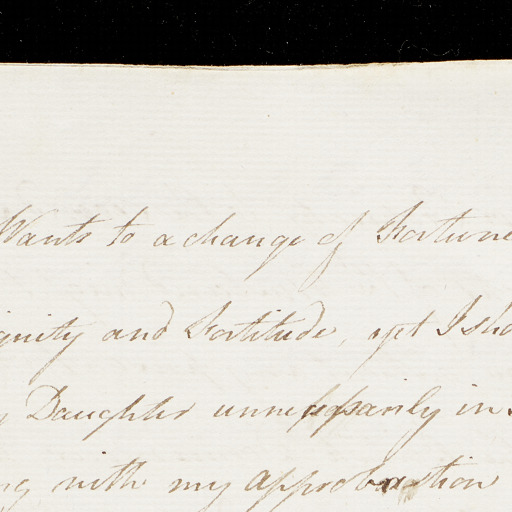 Wants to a change of Fortune
gnity and Fortitude, yet I sho
y Daughter unnecessarily in
ng with my approbation